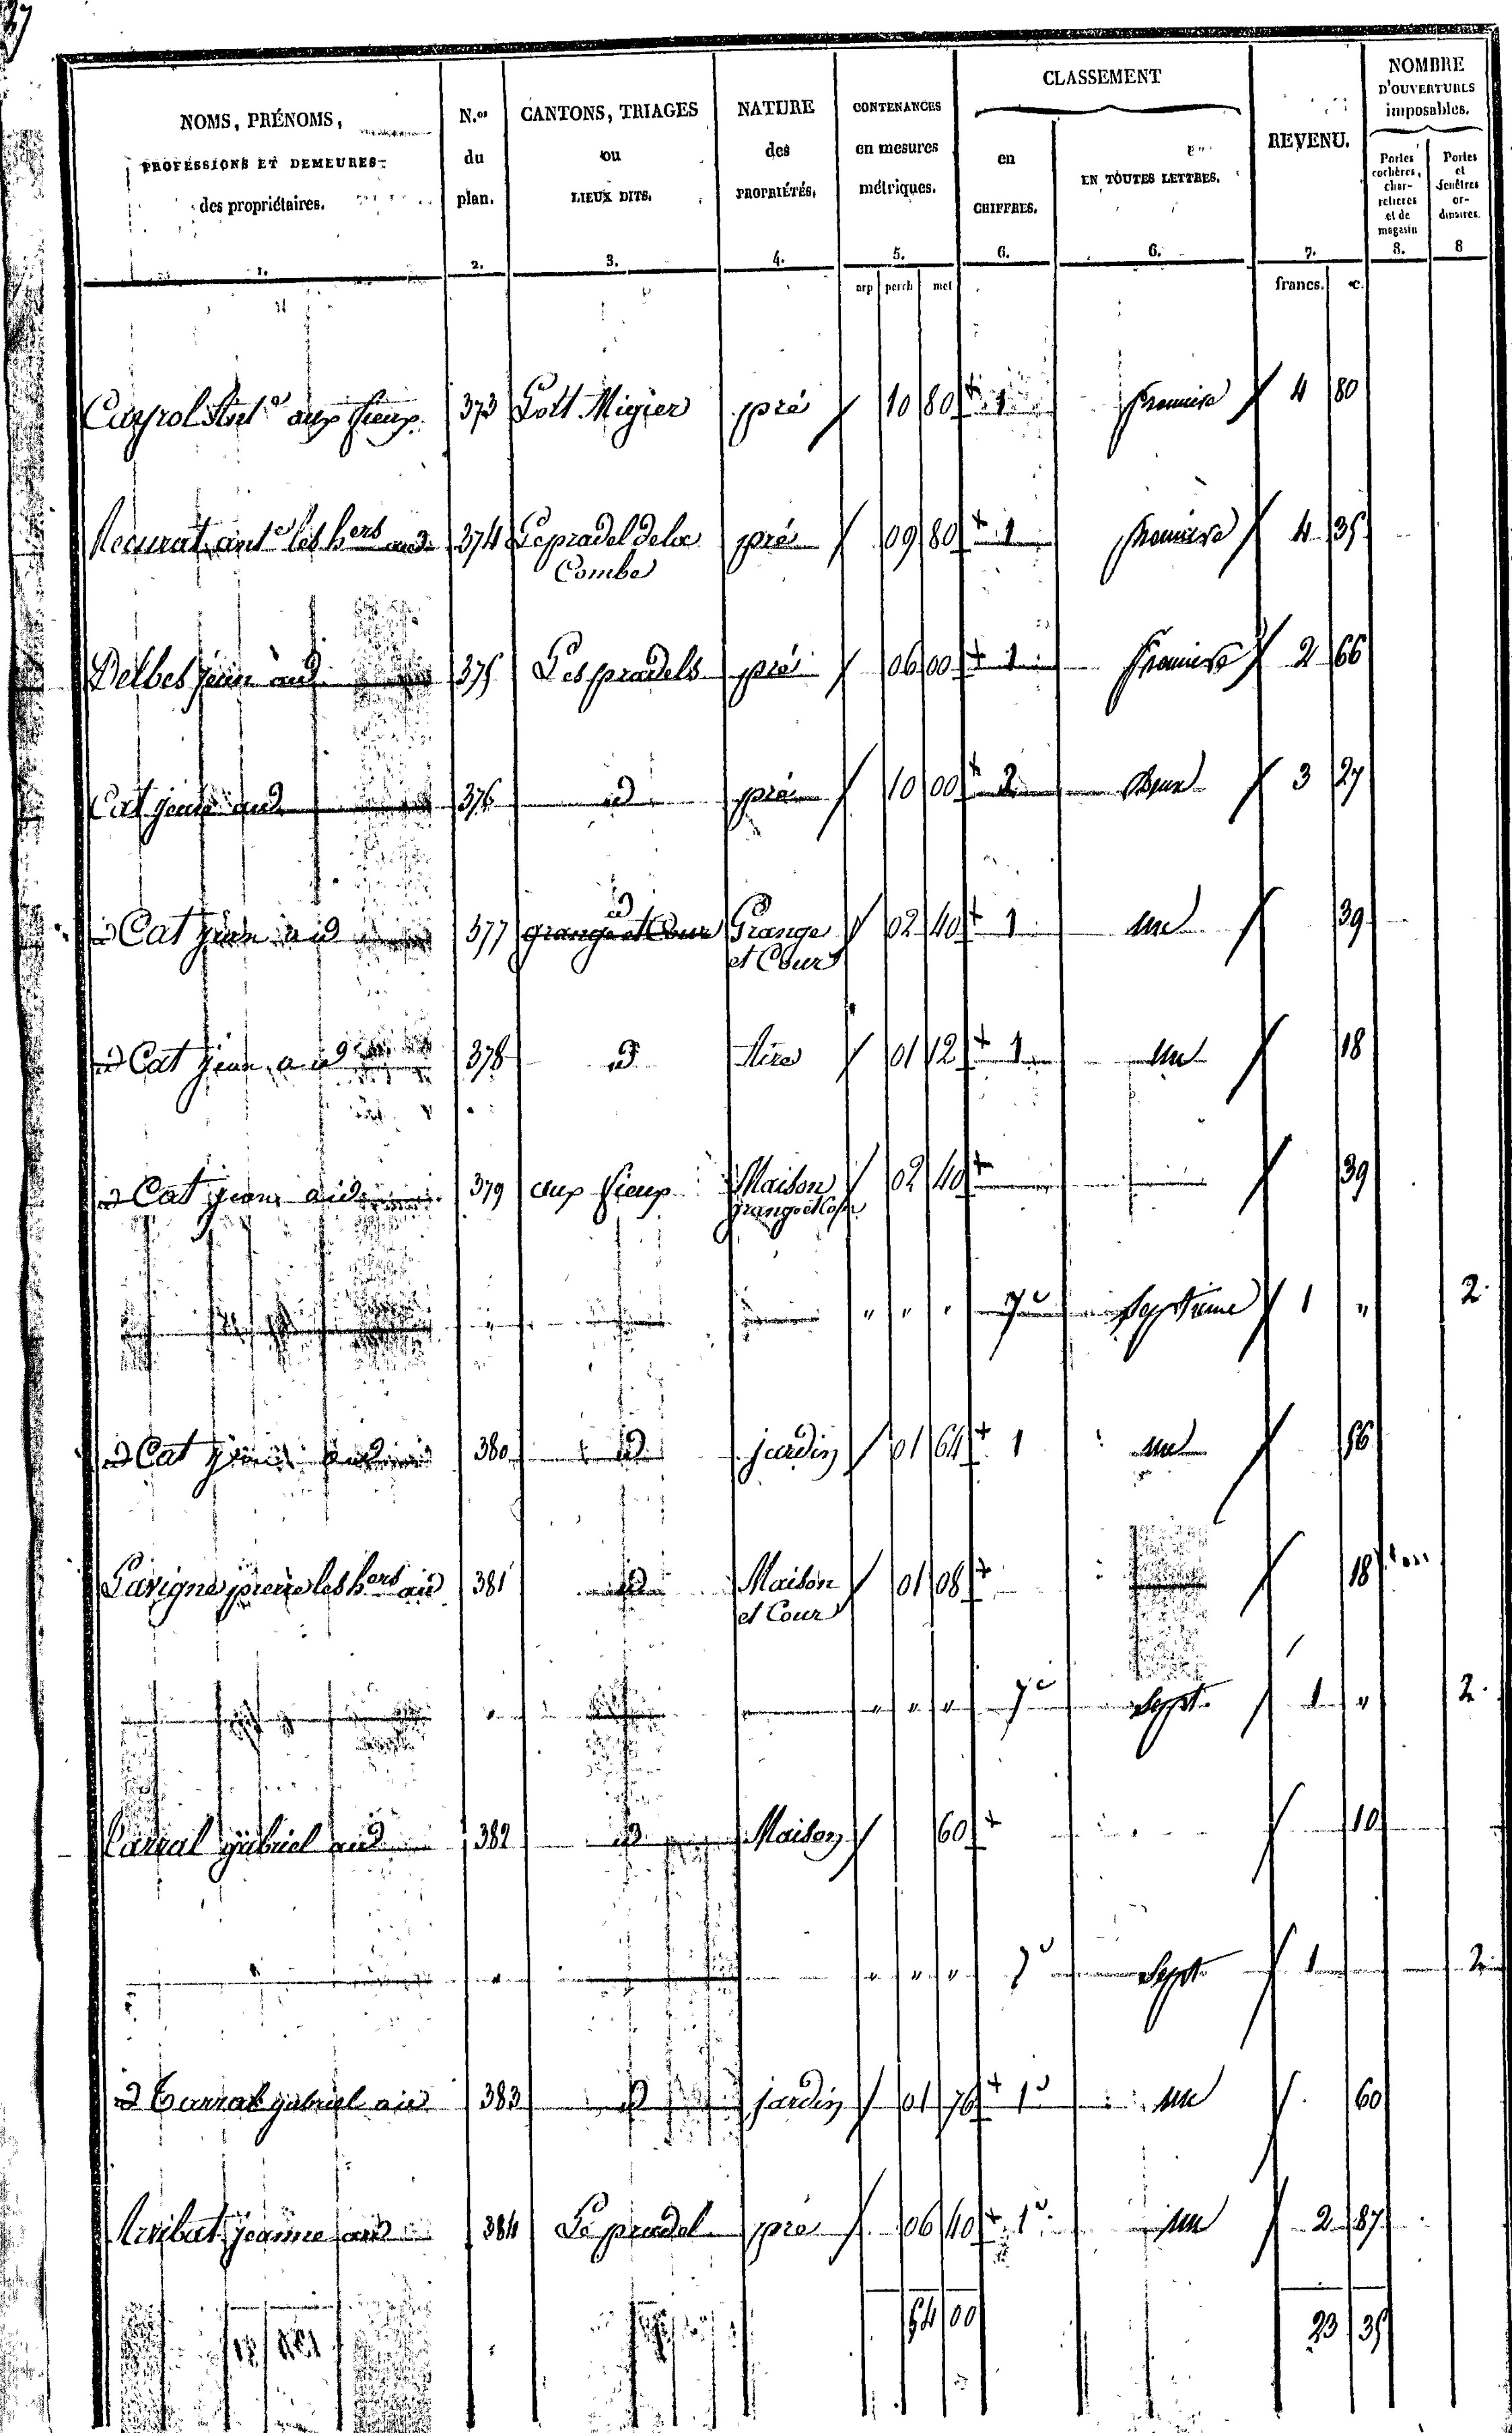 27
NOMS, PRÉNOMS, PROFESSIONS ET DEMEURES des propriétaires. 1.
N.os du plan. 2.
CANTONS, TRIAGES ou LIEUX DITS. 3.
NATURE des PROPRIÉTÉS. 4.
CONTENANCES en mesures métriques. 5.
CLASSEMENT
en CHIFFRES. 6.
EN TOUTES LETTRES. 6.
REVENU. 7.
NOMBRE D'OUVERTURES imposables.
Portes cochères, charretières et de magasin 8.
Portes et fenêtres ordinaires. 8
arp perch met francs. c.
Cayrol Ant.e aux fieux 373 Lolt Migier pré 10 80 1 première 4 80
ant.e les hers aud. 374 Le pradel dela Combe pré 09 80 1 première 4 35
Delbes jean aud. 375 Les pradels pré 06 00 1 première 2 66
Cat jean aud 376 id pré 10 00 2 deux 3 27
id Cat jean aud 377 grange et Cour id Grange et Cour 02 40 1 une 39
id Cat jean aud 378 id Aire 01 12 1 un 18
id Cat jean aud 379 aux fieux Maison grange et Cour 02 40 39
" " " " 7e septième 1 " 2
id Cat jean aud 380 id jardin 01 64 1 un 56
Lavigne pierre les hers aud 381 id Maison et Cour 01 08 18
" " " " 7e Sept. 1 " 2
Carral gabriel aud 382 id Maison 60 10
" " " " 7e Sept. 1 2
id Carral gabriel aud 383 id jardin 01 76 1e un 60
Arribat jeanne aud 384 Le pradel pré 06 40 1e un 2 87
64 00 23 35